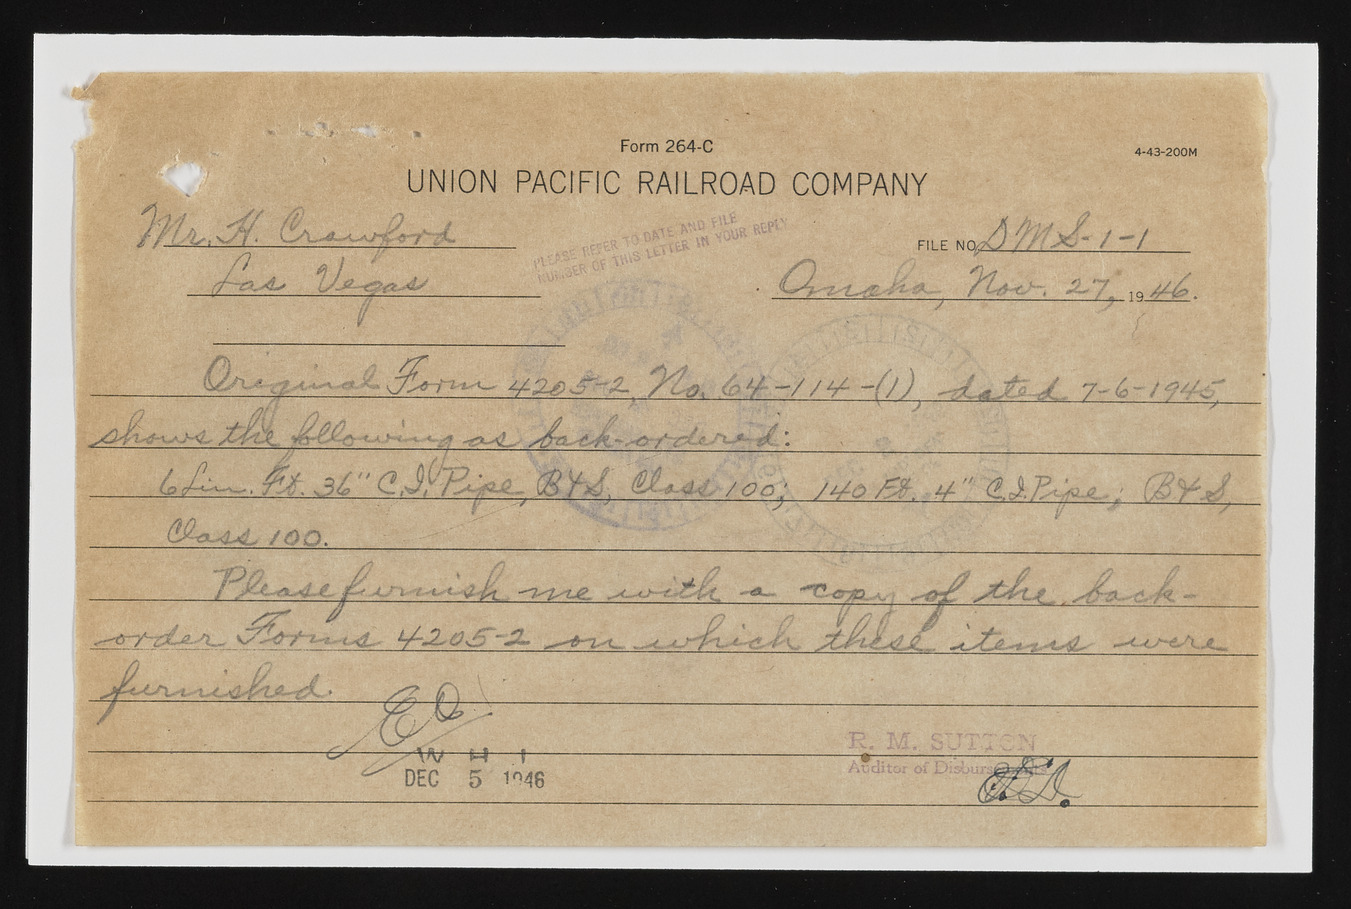 Form 264-C
4-43-200M
UNION PACIFIC RAILROAD COMPANY
Mr. H. Crawford
PLEASE REFER TO DATE AND FILE
NUMBER OF THIS LETTER IN YOUR REPLY
FILE NO. DMS-1-1
Las Vegas
Omaha, Nov. 27, 1946.
Original Form 4205-2, No. 64-114-(1), dated 7-6-1945,
shows the following as back-ordered:
6 Lin. Ft. 36" C.I. Pipe, B&S, Class 100; 140 Ft. 4" C.I. Pipe; B&S,
Class 100.
Please furnish me with a copy of the back-
order Forms 4205-2 on which these items were
furnished.
R. M. SUTTON
Auditor of Disbursements
DEC 5 1946